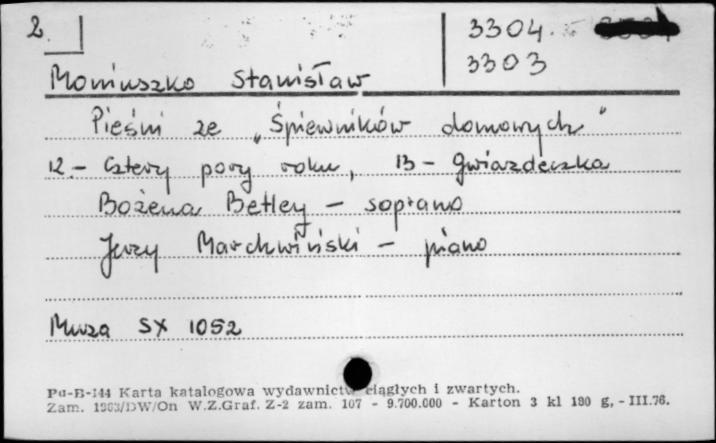 2 3304.
3303
Moniuszko Stanisław
Pieśni ze „Śpiewników domowych"
12.- Cztery pory roku, 13 - Gwiazdeczka
Bożena Betley - soprano
Jerzy Marchwiński - piano
Muza SX 1052
Pu-B-144 Karta katalogowa wydawnictw ciągłych i zwartych.
Zam. 1963/DW/On W.Z.Graf. Z-2 zam. 107 - 9.700.000 - Karton 3 kl 180 g, - III.76.